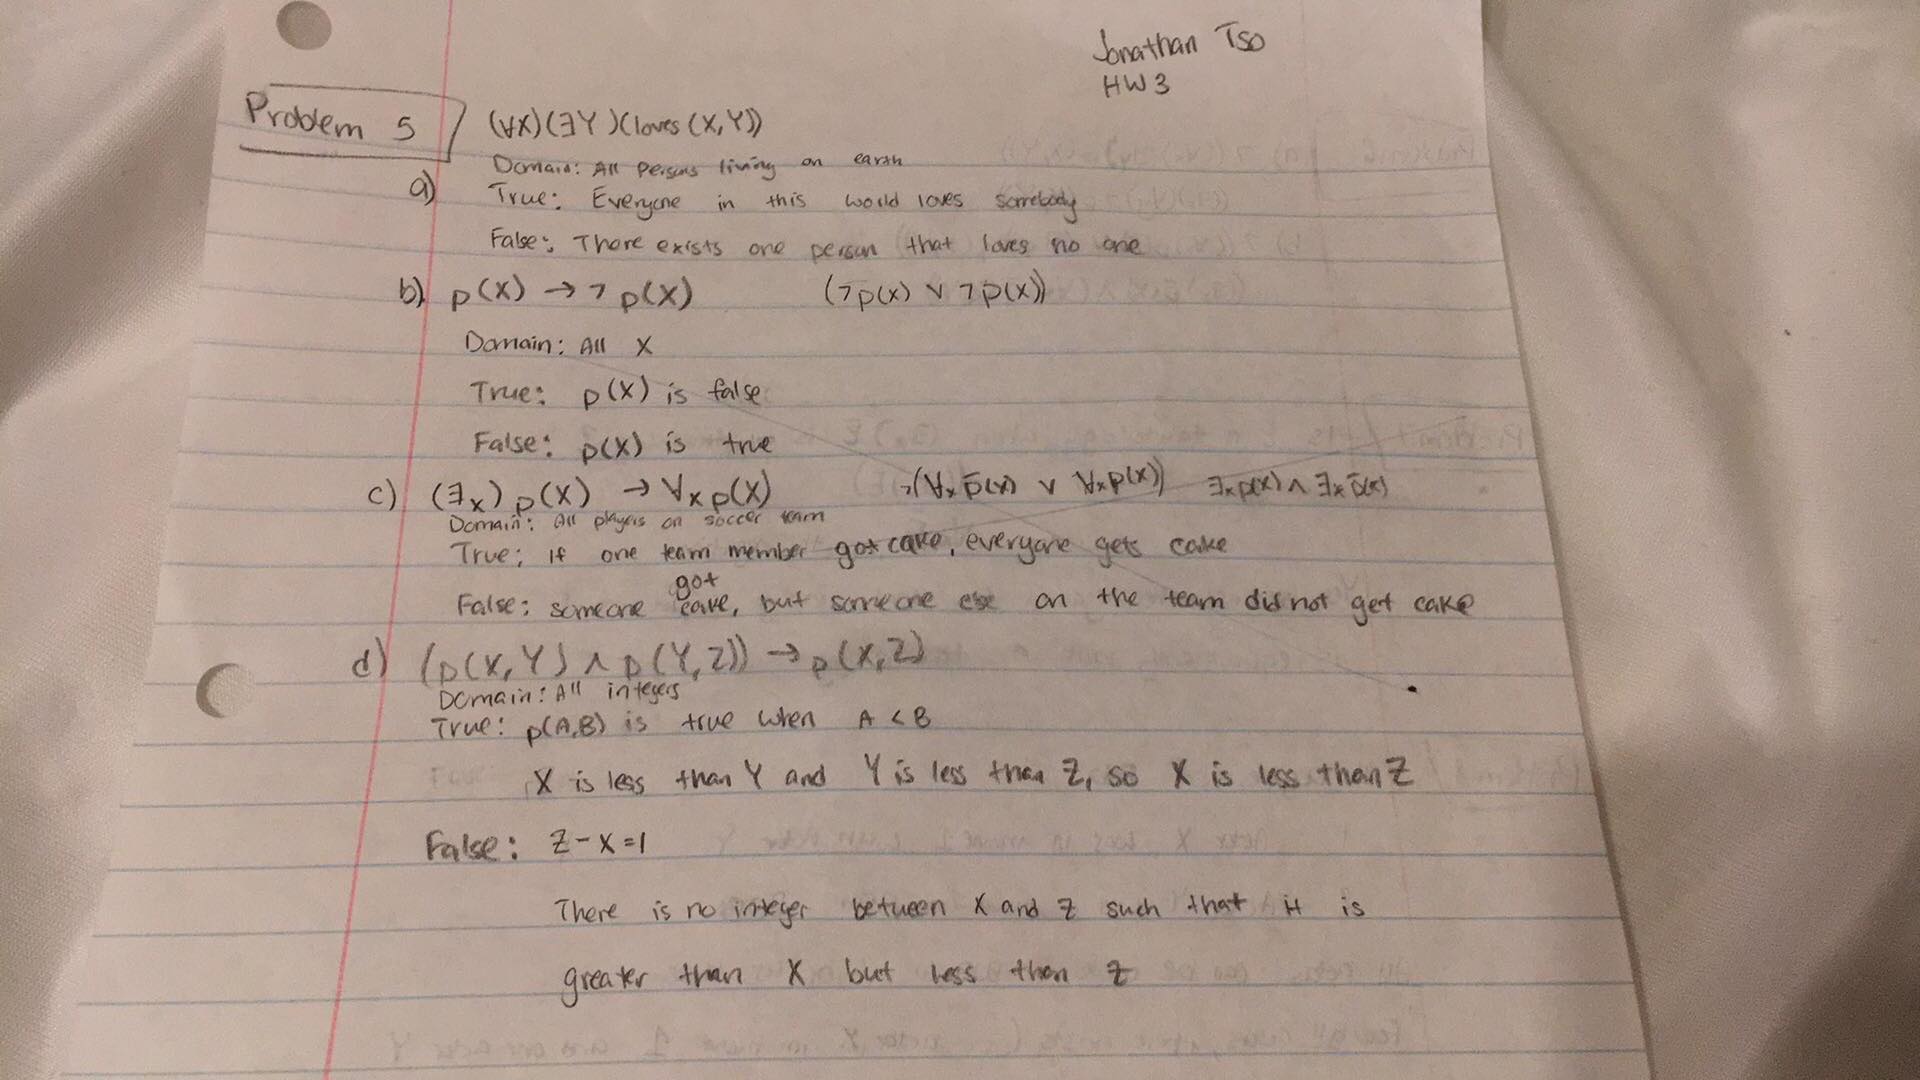 Jonathan Tso
HW3
Problem 5
(∀X)(∃Y)(loves(X,Y))
Domain: All persons living on earth
a)
True: Everyone in this world loves somebody
False: There exists one person that loves no one
b) p(X) → ¬ p(X) (¬p(x) ∨ ¬p(x))
Domain: All X
True: p(X) is false
False: p(X) is true
c) (∃x) p(X) → ∀x p(X) ¬(∀x p̄(x) ∨ ∀x p(x)) ∃x p(x) ∧ ∃x p̄(x)
Domain: All players on soccer team
True: if one team member got cake, everyone gets cake
got
False: someone cake, but someone else on the team did not get cake
d) (p(X,Y) ∧ p(Y,Z)) → p(X,Z)
Domain: All integers
True: p(A,B) is true when A < B
X is less than Y and Y is less than Z, so X is less than Z
False: Z-X=1
There is no integer between X and Z such that it is
greater than X but less than Z